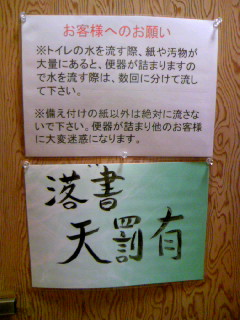 お客様へのお願い
※トイレの水を流す際、紙や汚物が
大量にあると、便器が詰まりますの
で水を流す際は、数回に分けて流し
て下さい。
※備え付けの紙以外は絶対に流さな
いで下さい。便器が詰まり他のお客様
に大変迷惑になります。
落書
天罰有